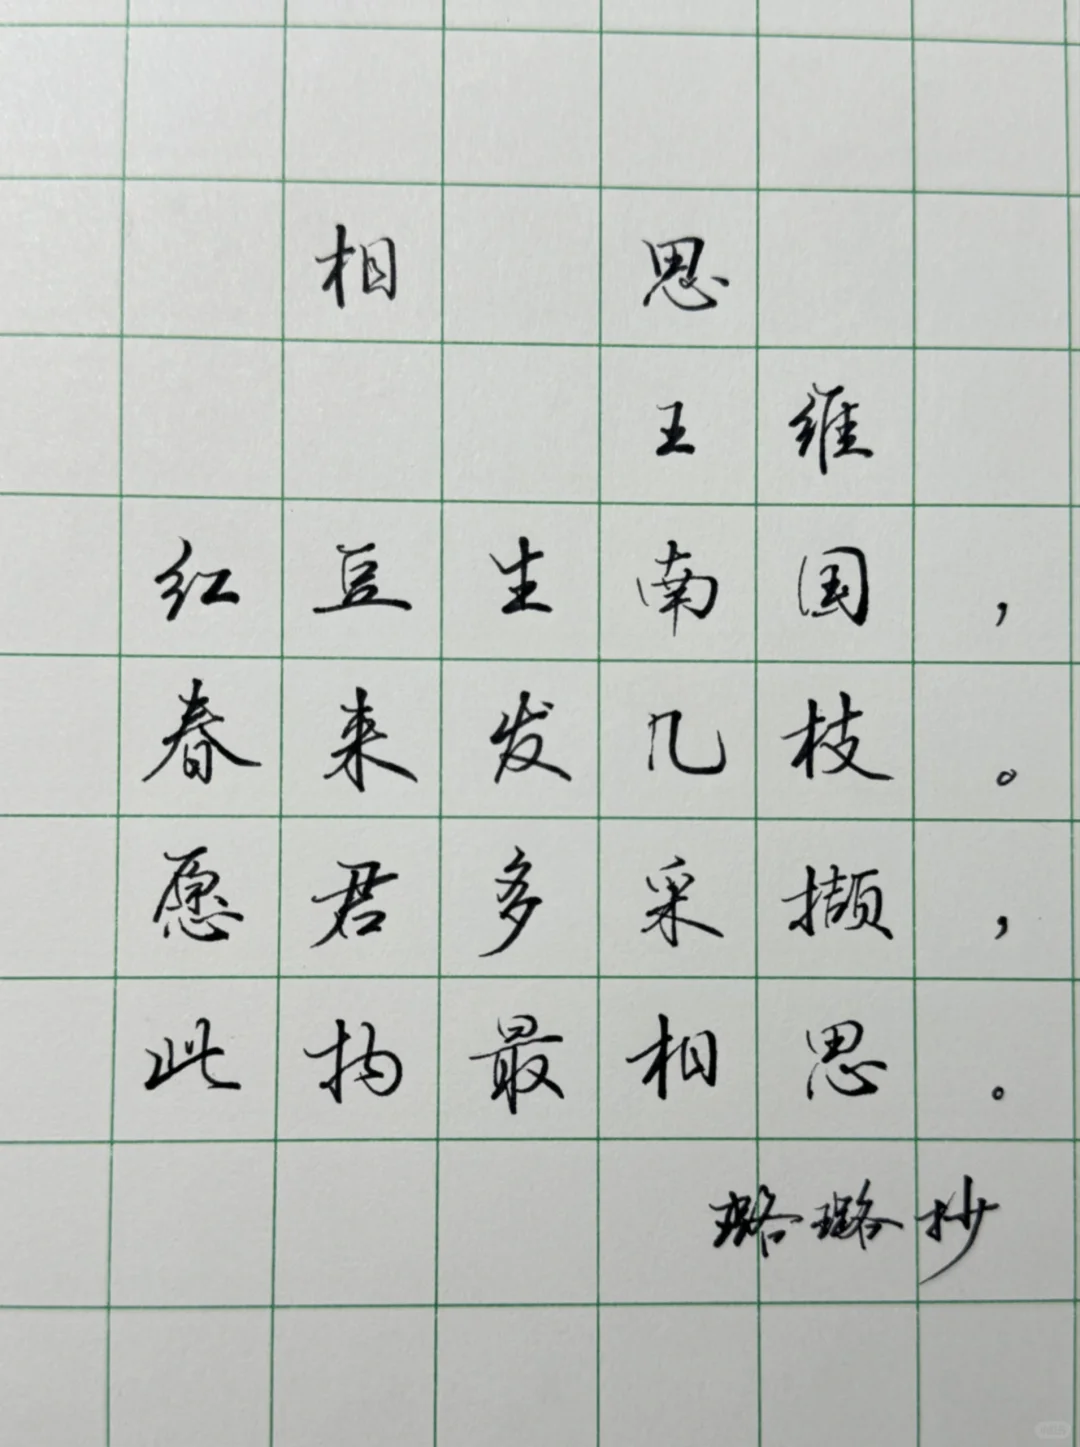 相思
王维
红豆生南国，
春来发几枝。
愿君多采撷，
此物最相思。
璐璐抄